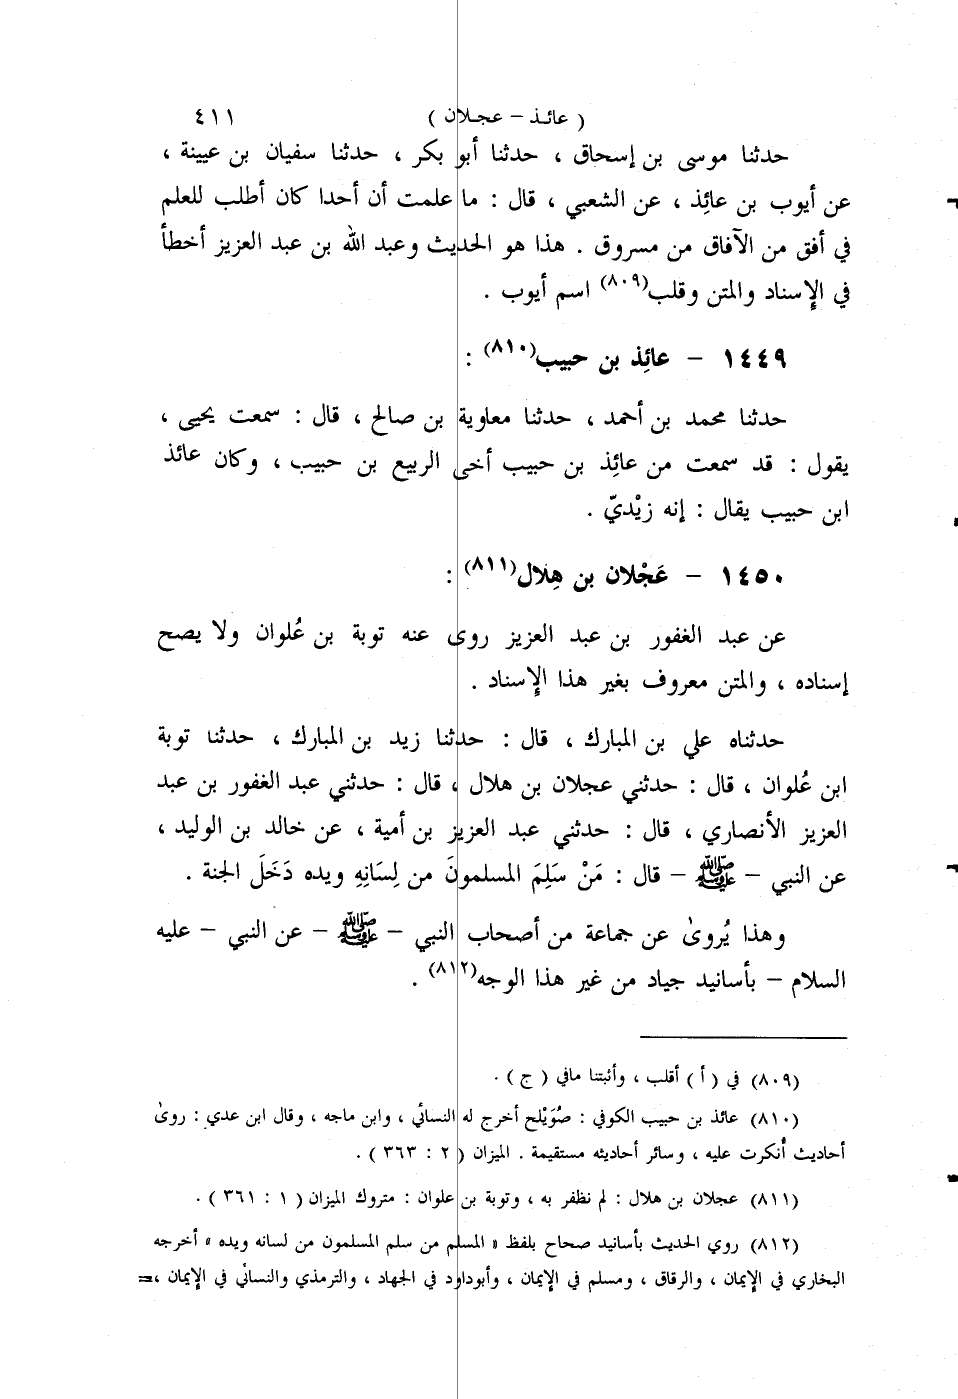 ( عائـذ – عجـلان ) ٤١١
حدثنا موسى بن إسحاق ، حدثنا أبو بكر ، حدثنا سفيان بن عيينة ،
عن أيوب بن عائِذ ، عن الشعبي ، قال : ما علمت أن أحدا كان أطلب للعلم
في أفق من الآفاق من مسروق . هذا هو الحديث وعبد الله بن عبد العزيز أخطأ
في الإسناد والمتن وقلب(٨٠٩) اسم أيوب .
١٤٤٩ – عائِذ بن حبيب(٨١٠) :
حدثنا محمد بن أحمد ، حدثنا معاوية بن صالح ، قال : سمعت يحيى ،
يقول : قد سمعت من عائِذ بن حبيب أخى الربيع بن حبيب ، وكان عائذ
ابن حبيب يقال : إنه زيْديّ .
١٤٥٠ – عَجْلان بن هِلال(٨١١) :
عن عبد الغفور بن عبد العزيز روى عنه توبة بن عُلوان ولا يصح
إسناده ، والمتن معروف بغير هذا الإسناد .
حدثناه علي بن المبارك ، قال : حدثنا زيد بن المبارك ، حدثنا توبة
ابن عُلوان ، قال : حدثني عجلان بن هلال ، قال : حدثني عبد الغفور بن عبد
العزيز الأنصاري ، قال : حدثني عبد العزيز بن أمية ، عن خالد بن الوليد ،
عن النبي – ﷺ – قال : مَنْ سَلِمَ المسلمونَ من لِسَانِهِ ويده دَخَلَ الجنة .
وهذا يُروىٰ عن جماعة من أصحاب النبي – ﷺ – عن النبي – عليه
السلام – بأسانيد جياد من غير هذا الوجه(٨١٢) .
(٨٠٩) في ( أ ) أقلب ، وأثبتنا مافي ( ج ) .
(٨١٠) عائذ بن حبيب الكوفي : صُوَيْلح أخرج له النسائي ، وابن ماجه ، وقال ابن عدي : روىٰ
أحاديث أُنكرت عليه ، وسائر أحاديثه مستقيمة . الميزان ( ٢ : ٣٦٣ ) .
(٨١١) عجلان بن هلال : لم نظفر به ، وتوبة بن علوان : متروك الميزان ( ١ : ٣٦١ ) .
(٨١٢) روي الحديث بأسانيد صحاح بلفظ « المسلم من سلم المسلمون من لسانه ويده » أخرجه
البخاري في الإيمان ، والرقاق ، ومسلم في الإيمان ، وأبوداود في الجهاد ، والترمذي والنسائي في الإيمان ،=